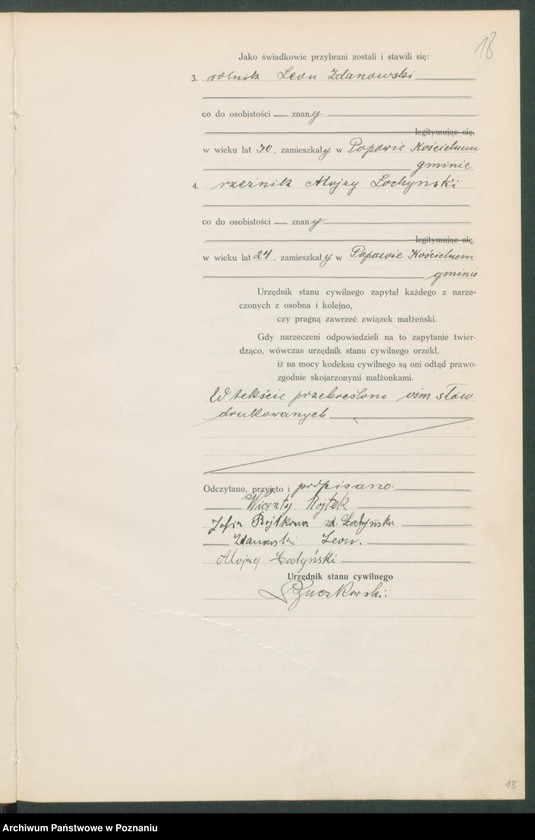 18
Jako świadkowie przybrani zostali i stawili się:
3. rolnik Leon Zdanowski
co do osobistości — znany
legitymując się,
w wieku lat 30, zamieszkały w Popowie Kościelnem
gminie
4. rzeźnik Alojzy Łochyński
co do osobistości — znany
legitymując się
w wieku lat 24, zamieszkały w Popowie Kościelnem
gminie
Urzędnik stanu cywilnego zapytał każdego z narze-
czonych z osobna i kolejno,
czy pragną zawrzeć związek małżeński.
Gdy narzeczeni odpowiedzieli na to zapytanie twier-
dząco, wówczas urzędnik stanu cywilnego orzekł,
iż na mocy kodeksu cywilnego są oni odtąd prawo-
zgodnie skojarzonymi małżonkami.
W tekście przekreślono słów
drukowanych
Odczytano, przyjęto i podpisano
Wicenty Rojtek
Zofia Rojtkowa zd. Łochyńska
Zdanowski Leon.
Alojzy Łochyński
Urzędnik stanu cywilnego
18
Archiwum Państwowe w Poznaniu